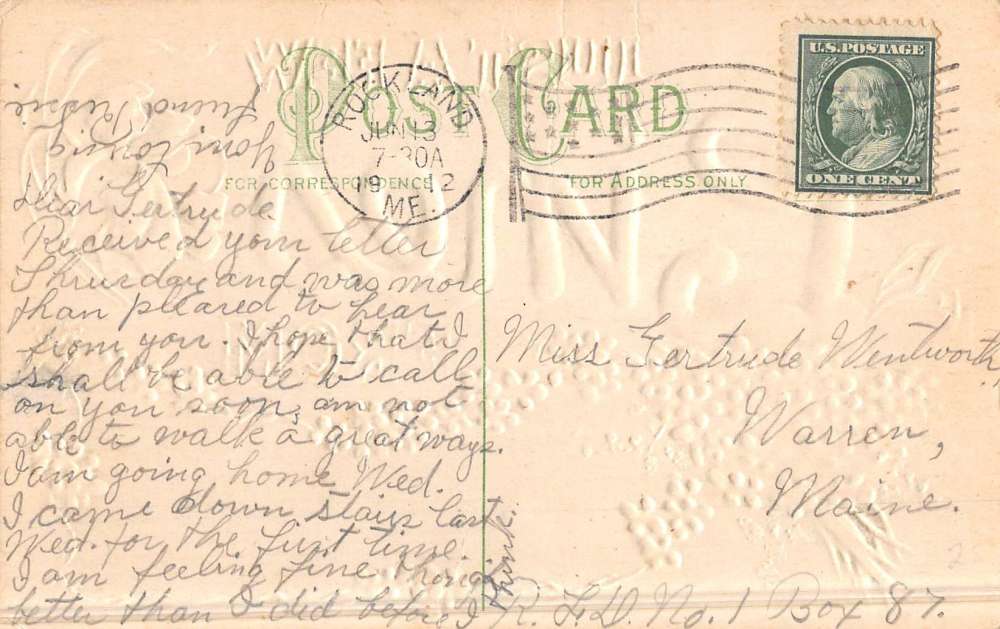 POST CARD
FOR CORRESPONDENCE
FOR ADDRESS ONLY
ROCKLAND
JUN 3
7-30A
1912
ME.
U.S. POSTAGE
ONE CENT
Dear Gertrude
Received your letter
Thrusday and was more
than pleased to hear
from you. I hope that I
shall be able to call
on you soon, am not
able to walk a great ways.
I am going home Wed.
I came down stairs last
Wed. for the first time.
I am feeling fine though
better than I did before I
think.
Your loving
friend
Miss Gertrude Wentworth,
Warren,
Maine.
R. F. D. No. 1 Box 87.